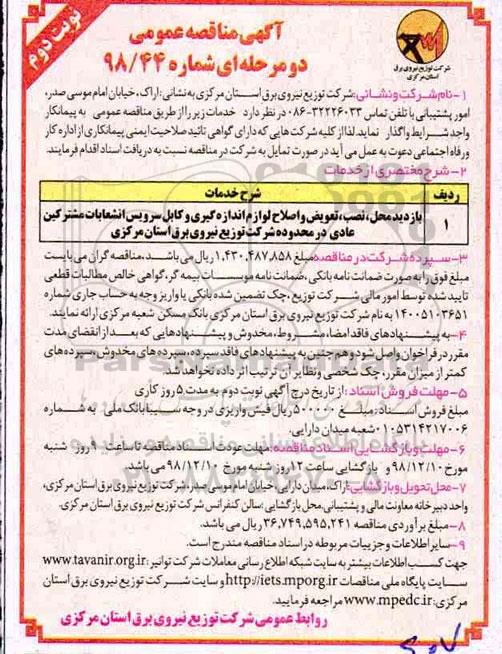 نوبت دوم
آگهی مناقصه عمومی
دو مرحله ای شماره ۹۸/۴۴
شرکت توزیع نیروی برق
استان مرکزی
۱-نام شرکت و نشانی: شرکت توزیع نیروی برق استان مرکزی به نشانی: اراک، خیابان امام موسی صدر،
امور پشتیبانی با تلفن تماس ۳۲۲۲۶۰۳۳-۰۸۶ در نظر دارد خدمات زیر را از طریق مناقصه عمومی به پیمانکار
واجد شرایط واگذار نماید. لذا از کلیه شرکت هایی که دارای گواهی تائید صلاحیت ایمنی پیمانکاری از اداره کار
ورفاه اجتماعی دعوت به عمل می آید در صورت تمایل به شرکت در مناقصه نسبت به دریافت اسناد اقدام فرمایند.
۲-شرح مختصری از خدمات
ردیف شرح خدمات
۱ بازدید محل، نصب، تعویض و اصلاح لوازم اندازه گیری و کابل سرویس انشعابات مشترکین
عادی در محدوده شرکت توزیع نیروی برق استان مرکزی
۳-سپرده شرکت در مناقصه مبلغ ۱,۴۳۰,۴۸۷,۸۵۸ ریال می باشد. مناقصه گران می بایست
مبلغ فوق را به صورت ضمانت نامه بانکی، ضمانت نامه موسسات بیمه گر، گواهی خالص مطالبات قطعی
تایید شده توسط امور مالی شرکت توزیع، چک تضمین شده بانکی یا واریز وجه به حساب جاری شماره
۱۴۰۰۵۱۰۳۶۵۱ به نام شرکت توزیع نیروی برق استان مرکزی بانک مسکن شعبه مرکزی ارائه نمایند.
۴-به پیشنهادهای فاقد امضا، مشروط، مخدوش و پیشنهادهایی که بعد از انقضای مدت
مقرر در فراخوان واصل شود و هم چنین به پیشنهادهای فاقد سپرده، سپرده های مخدوش، سپرده های
کمتر از میزان مقرر، چک شخصی ونظایر آن ترتیب اثر داده نخواهد شد.
۵-مهلت فروش اسناد: از تاریخ درج آگهی نوبت دوم به مدت ۵ روز کاری
مبلغ فروش اسناد: مبلغ ۵۰۰,۰۰۰ ریال فیش واریزی در وجه سیبا بانک ملی به شماره
۰۱۰۵۳۱۴۲۱۷۰۰۶ شعبه میدان دارایی.
۶-مهلت و بازگشایی اسناد مناقصه: مهلت عودت اسناد مناقصه تا ساعت ۱۰ روز شنبه
مورخ ۹۸/۱۲/۱۰ و بازگشایی ساعت ۱۲ روز شنبه مورخ ۹۸/۱۲/۱۰ می باشد.
۷-محل تحویل و بازگشایی: اراک، میدان دارایی، خیابان امام موسی صدر، شرکت توزیع نیروی برق استان مرکزی،
واحد دبیرخانه معاونت مالی و پشتیبانی، محل بازگشایی: سالن کنفرانس شرکت توزیع نیروی برق استان مرکزی.
۸-مبلغ برآوردی مناقصه ۳۶,۷۴۹,۵۹۵,۲۴۱ ریال می باشد.
۹-سایر اطلاعات و جزییات مربوطه در اسناد مناقصه مندرج است.
جهت کسب اطلاعات بیشتر به سایت شبکه اطلاع رسانی معاملات شرکت توانیر: www.tavanir.org.ir
سایت پایگاه ملی مناقصات http://iets.mporg.ir و سایت شرکت توزیع نیروی برق استان
مرکزی: www.mpedc.ir مراجعه فرمایید.
روابط عمومی شرکت توزیع نیروی برق استان مرکزی